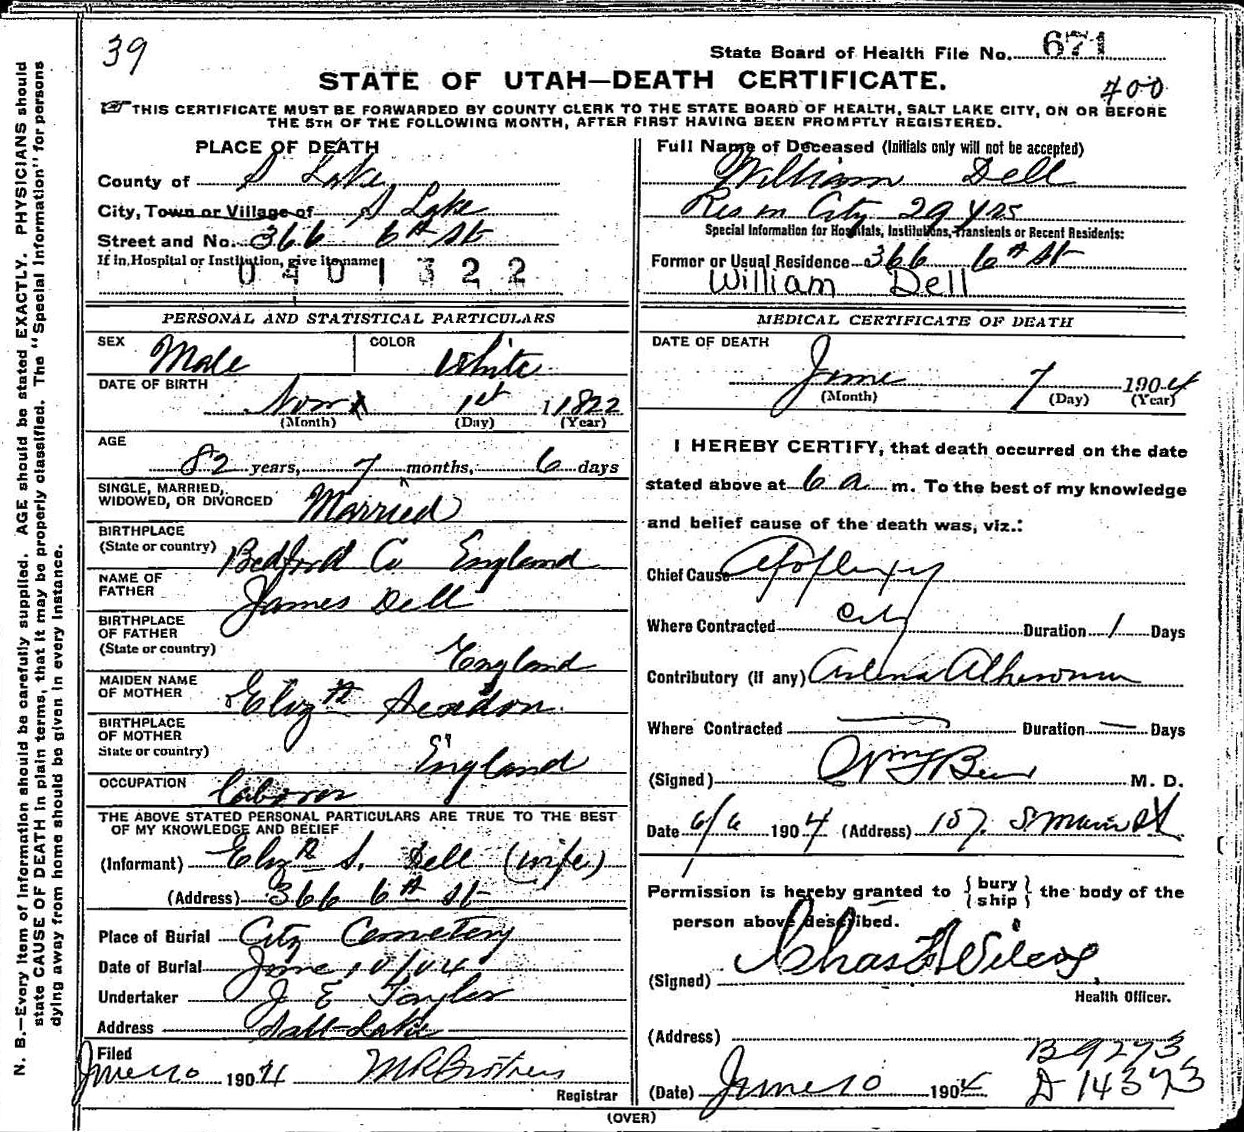 39
State Board of Health File No. 671
STATE OF UTAH—DEATH CERTIFICATE.
400
THIS CERTIFICATE MUST BE FORWARDED BY COUNTY CLERK TO THE STATE BOARD OF HEALTH, SALT LAKE CITY, ON OR BEFORE
THE 5TH OF THE FOLLOWING MONTH, AFTER FIRST HAVING BEEN PROMPTLY REGISTERED.
PLACE OF DEATH
County of S Lake
City, Town or Village of S Lake
Street and No. 366 6th St
If in Hospital or Institution, give its name
0401322
Full Name of Deceased (Initials only will not be accepted)
William Dell
Res in City 29 yrs
Special Information for Hospitals, Institutions, Transients or Recent Residents:
Former or Usual Residence 366 6th St
William Dell
PERSONAL AND STATISTICAL PARTICULARS
SEX Male COLOR White
DATE OF BIRTH
1st 1822
(Month) (Day) (Year)
AGE
82 years, 7 months, 6 days
SINGLE, MARRIED,
WIDOWED, OR DIVORCED Married
BIRTHPLACE
(State or country) Bedford Co England
NAME OF
FATHER James Dell
BIRTHPLACE
OF FATHER
(State or country) England
MAIDEN NAME
OF MOTHER Elizth
BIRTHPLACE
OF MOTHER
State or country) England
OCCUPATION Laborer
THE ABOVE STATED PERSONAL PARTICULARS ARE TRUE TO THE BEST
OF MY KNOWLEDGE AND BELIEF
(Informant) Elizth S. Dell (wife)
(Address) 366 6th St
Place of Burial City Cemetery
Date of Burial June 10/04
Undertaker J E Taylor
Address Salt Lake
Filed
June 10 1904
Registrar
MEDICAL CERTIFICATE OF DEATH
DATE OF DEATH
June 7 1904
(Month) (Day) (Year)
I HEREBY CERTIFY, that death occurred on the date
stated above at 6 a m. To the best of my knowledge
and belief cause of the death was, viz.:
Chief Cause Apoplexy
Where Contracted City Duration 1 Days
Contributory (if any)
Where Contracted — Duration — Days
(Signed) M. D.
Date 6/6 1904 (Address) 157 S Main St
Permission is hereby granted to {bury
ship} the body of the
person above described.
(Signed) Chas Wilcox
Health Officer.
(Address)
(Date) June 10 1904
B 9273
D 14373
(OVER)
N. B.—Every item of information should be carefully supplied. AGE should be stated EXACTLY. PHYSICIANS should
state CAUSE OF DEATH in plain terms, that it may be properly classified. The "Special Information" for persons
dying away from home should be given in every instance.